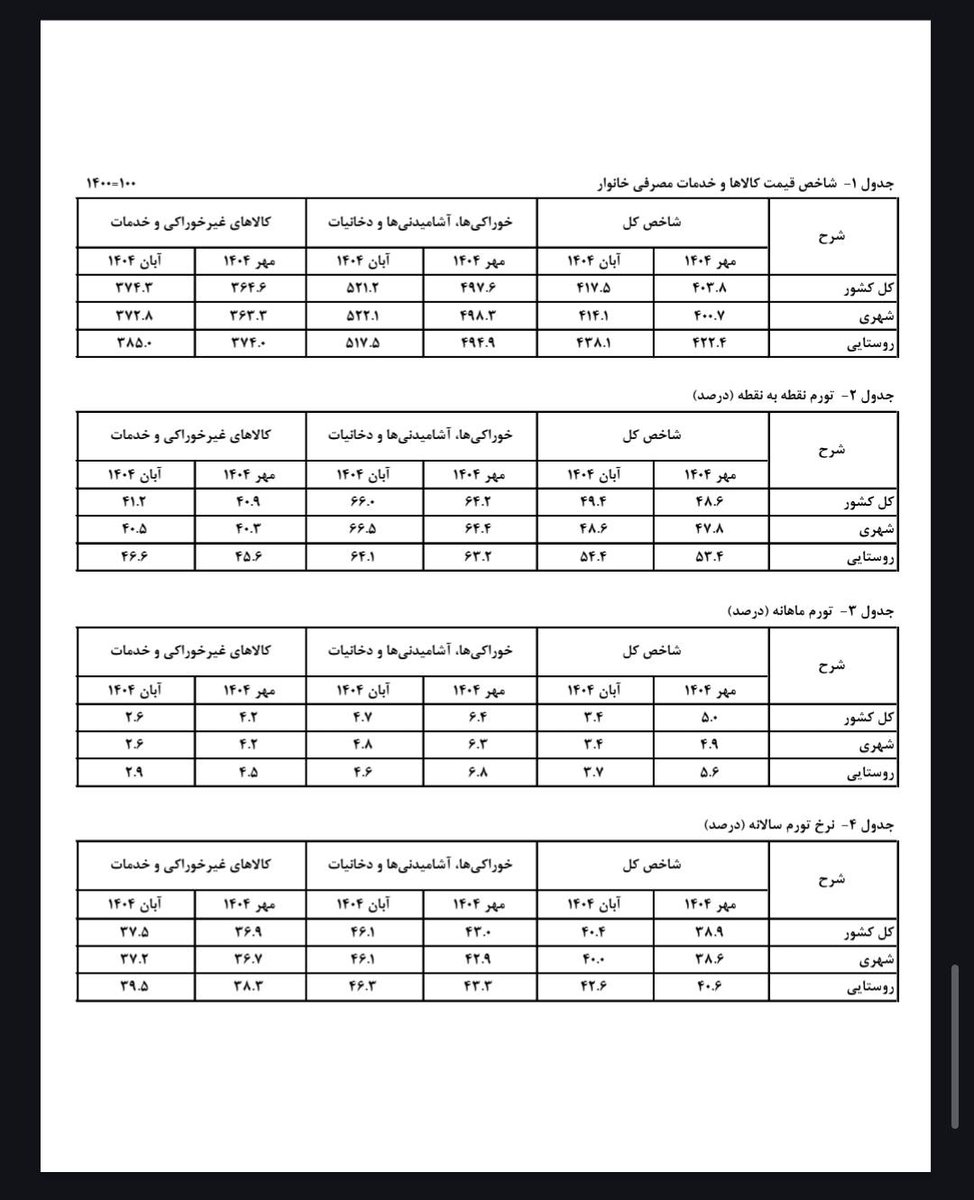 جدول ۱- شاخص قیمت کالاها و خدمات مصرفی خانوار ۱۴۰۰=۱۰۰
شرح شاخص کل خوراکی‌ها، آشامیدنی‌ها و دخانیات کالاهای غیرخوراکی و خدمات
مهر ۱۴۰۴ آبان ۱۴۰۴ مهر ۱۴۰۴ آبان ۱۴۰۴ مهر ۱۴۰۴ آبان ۱۴۰۴
کل کشور ۴۰۳.۸ ۴۱۷.۵ ۴۹۷.۶ ۵۲۱.۲ ۳۶۴.۶ ۳۷۴.۳
شهری ۴۰۰.۷ ۴۱۴.۱ ۴۹۸.۳ ۵۲۲.۱ ۳۶۳.۳ ۳۷۲.۸
روستایی ۴۲۲.۴ ۴۳۸.۱ ۴۹۴.۹ ۵۱۷.۵ ۳۷۴.۰ ۳۸۵.۰
جدول ۲- تورم نقطه به نقطه (درصد)
شرح شاخص کل خوراکی‌ها، آشامیدنی‌ها و دخانیات کالاهای غیرخوراکی و خدمات
مهر ۱۴۰۴ آبان ۱۴۰۴ مهر ۱۴۰۴ آبان ۱۴۰۴ مهر ۱۴۰۴ آبان ۱۴۰۴
کل کشور ۴۸.۶ ۴۹.۴ ۶۴.۲ ۶۶.۰ ۴۰.۹ ۴۱.۲
شهری ۴۷.۸ ۴۸.۶ ۶۴.۴ ۶۶.۵ ۴۰.۳ ۴۰.۵
روستایی ۵۳.۴ ۵۴.۴ ۶۳.۲ ۶۴.۱ ۴۵.۶ ۴۶.۶
جدول ۳- تورم ماهانه (درصد)
شرح شاخص کل خوراکی‌ها، آشامیدنی‌ها و دخانیات کالاهای غیرخوراکی و خدمات
مهر ۱۴۰۴ آبان ۱۴۰۴ مهر ۱۴۰۴ آبان ۱۴۰۴ مهر ۱۴۰۴ آبان ۱۴۰۴
کل کشور ۵.۰ ۳.۴ ۶.۴ ۴.۷ ۴.۲ ۲.۶
شهری ۴.۹ ۳.۴ ۶.۳ ۴.۸ ۴.۲ ۲.۶
روستایی ۵.۶ ۳.۷ ۶.۸ ۴.۶ ۴.۵ ۲.۹
جدول ۴- نرخ تورم سالانه (درصد)
شرح شاخص کل خوراکی‌ها، آشامیدنی‌ها و دخانیات کالاهای غیرخوراکی و خدمات
مهر ۱۴۰۴ آبان ۱۴۰۴ مهر ۱۴۰۴ آبان ۱۴۰۴ مهر ۱۴۰۴ آبان ۱۴۰۴
کل کشور ۳۸.۹ ۴۰.۴ ۴۳.۰ ۴۶.۱ ۳۶.۹ ۳۷.۵
شهری ۳۸.۶ ۴۰.۰ ۴۲.۹ ۴۶.۱ ۳۶.۷ ۳۷.۲
روستایی ۴۰.۶ ۴۲.۶ ۴۳.۳ ۴۶.۳ ۳۸.۳ ۳۹.۵